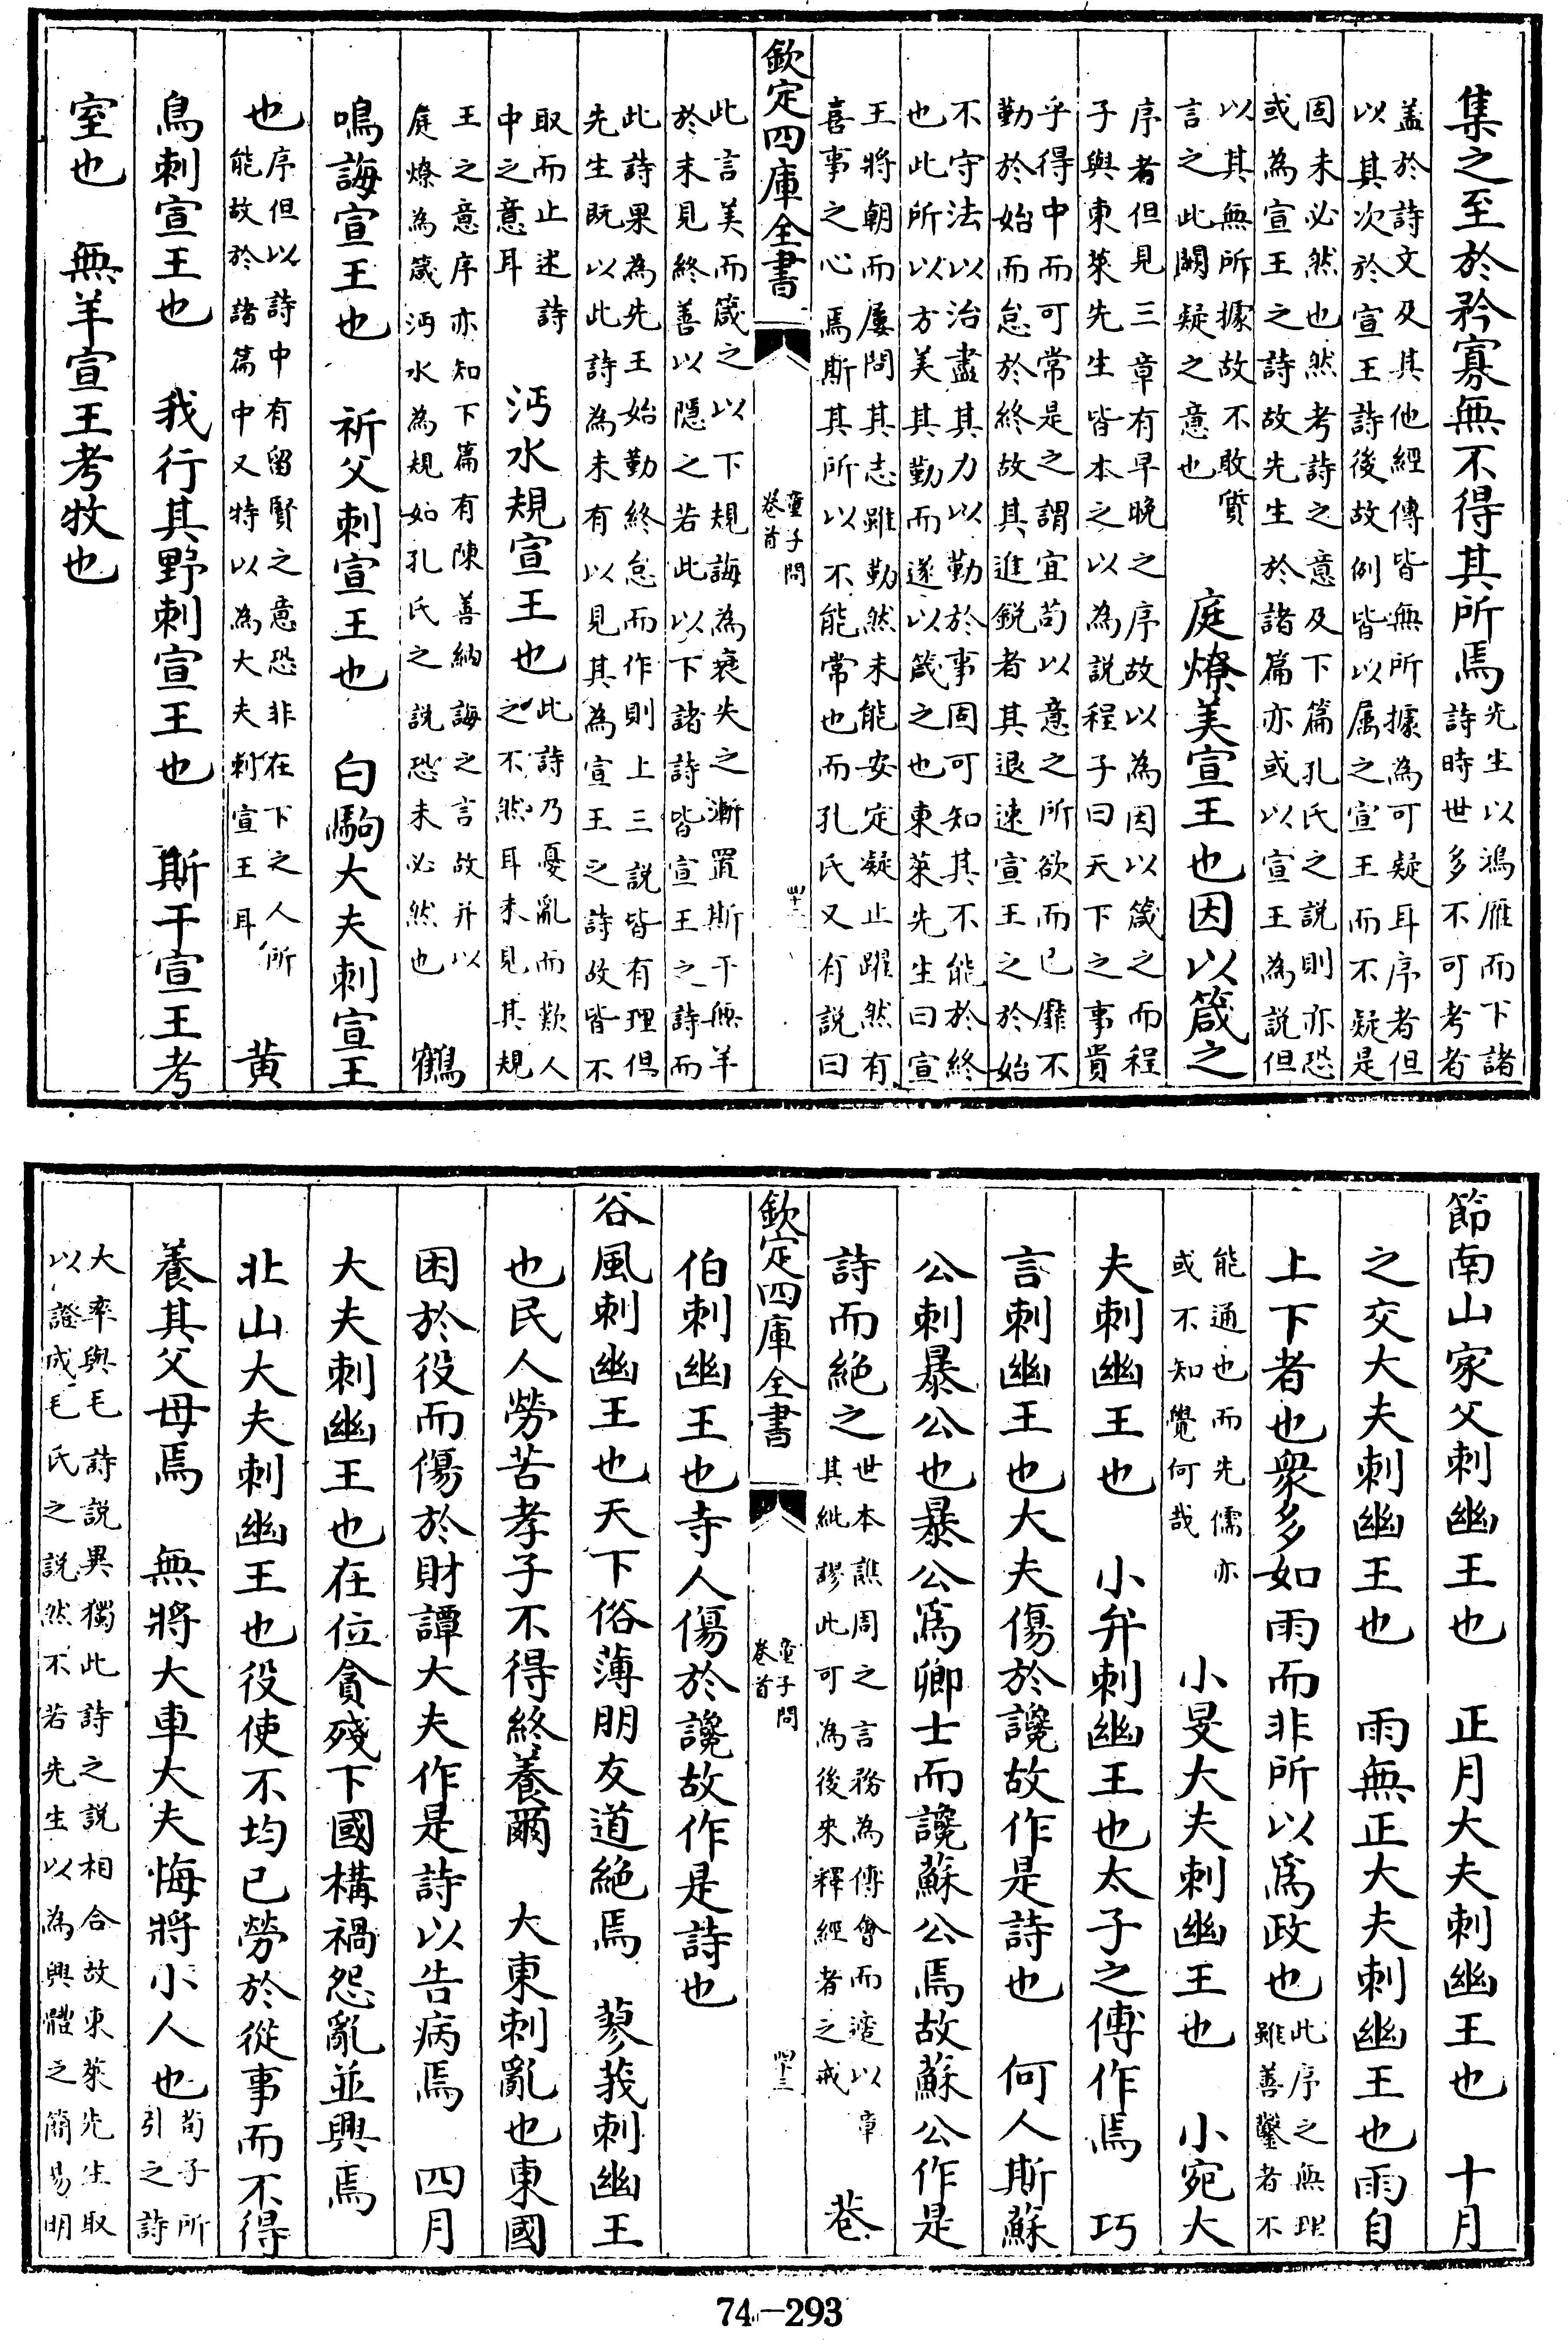 集之至於矜寡無不得其所焉 先生以鴻雁而下諸
詩時世多不可考者
盖於詩文及其他經傳皆無所據為可疑耳序者但
以其次於宣王詩後故例皆以属之宣王而不疑是
固未必然也然考詩之意及下篇孔氏之説則亦恐
或為宣王之詩故先生於諸篇亦或以宣王為説但
以其無所據故不敢質
言之此闕疑之意也 庭燎美宣王也因以箴之
序者但見三章有早晚之序故以為因以箴之而程
子與東萊先生皆本之以為説程子曰天下之事貴
乎得中而可常是之謂宜苟以意之所欲而已靡不
勤於始而怠於終故其進鋭者其退速宣王之於始
不守法以治盡其力以勤於事固可知其不能於終
也此所以方美其勤而遂以箴之也東萊先生曰宣
王將朝而屢問其志雖勤然未能安定凝止躍然有
喜事之心焉斯其所以不能常也而孔氏又有説曰
欽定四庫全書 童子問
卷首 四十二
此言美而箴之以下規誨為衰失之漸置斯干無羊
於末見終善以隱之若此以下諸詩皆宣王之詩而
此詩果為先王始勤終怠而作則上三説皆有理但
先生既以此詩為未有以見其為宣王之詩故皆不
取而止述詩
中之意耳 沔水規宣王也 此詩乃憂亂而歎人
之不然耳未見其規
王之意序亦知下篇有陳善納誨之言故并以
庭燎為箴沔水為規如孔氏之説恐未必然也 鶴
鳴誨宣王也 祈父刺宣王也 白駒大夫刺宣王
也 序但以詩中有留賢之意恐非在下之人所
能故於諸篇中又特以為大夫刺宣王耳 黄
鳥刺宣王也 我行其野刺宣王也 斯干宣王考
室也 無羊宣王考牧也
節南山家父刺幽王也 正月大夫刺幽王也 十月
之交大夫刺幽王也 雨無正大夫刺幽王也雨自
上下者也衆多如雨而非所以為政也 此序之無理
雖善鑿者不
能通也而先儒亦
或不知覺何哉 小旻大夫刺幽王也 小宛大
夫刺幽王也 小弁刺幽王也太子之傅作焉 巧
言刺幽王也大夫傷於讒故作是詩也 何人斯蘇
公刺暴公也暴公為卿士而讒蘇公焉故蘇公作是
詩而絶之 世本譙周之言務為傅會而適以章
其紕謬此可為後來釋經者之戒 巷
欽定四庫全書 童子問
卷首 四十三
伯刺幽王也寺人傷於讒故作是詩也
谷風刺幽王也天下俗薄朋友道絶焉 蓼莪刺幽王
也民人勞苦孝子不得終養爾 大東刺亂也東國
困於役而傷於財譚大夫作是詩以告病焉 四月
大夫刺幽王也在位貪殘下國構禍怨亂並興焉
北山大夫刺幽王也役使不均已勞於從事而不得
養其父母焉 無將大車大夫悔將小人也 荀子所
引之詩
大率與毛詩説異獨此詩之説相合故東萊先生取
以證成毛氏之説然不若先生以為興體之簡易明
74-293